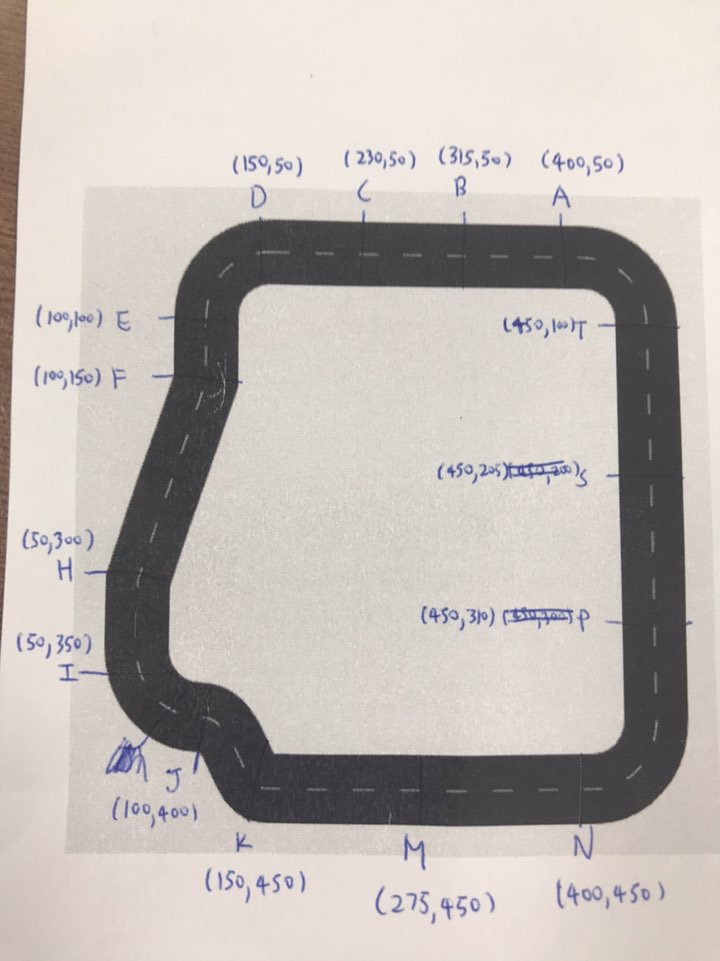 (150,50) (230,50) (315,50) (400,50)
D C B A
(100,100) E
(450,100) T
(100,150) F
(450,205) S
(50,300)
H
(450,310) P
(50,350)
I
J
(100,400)
K M N
(150,450) (275,450) (400,450)